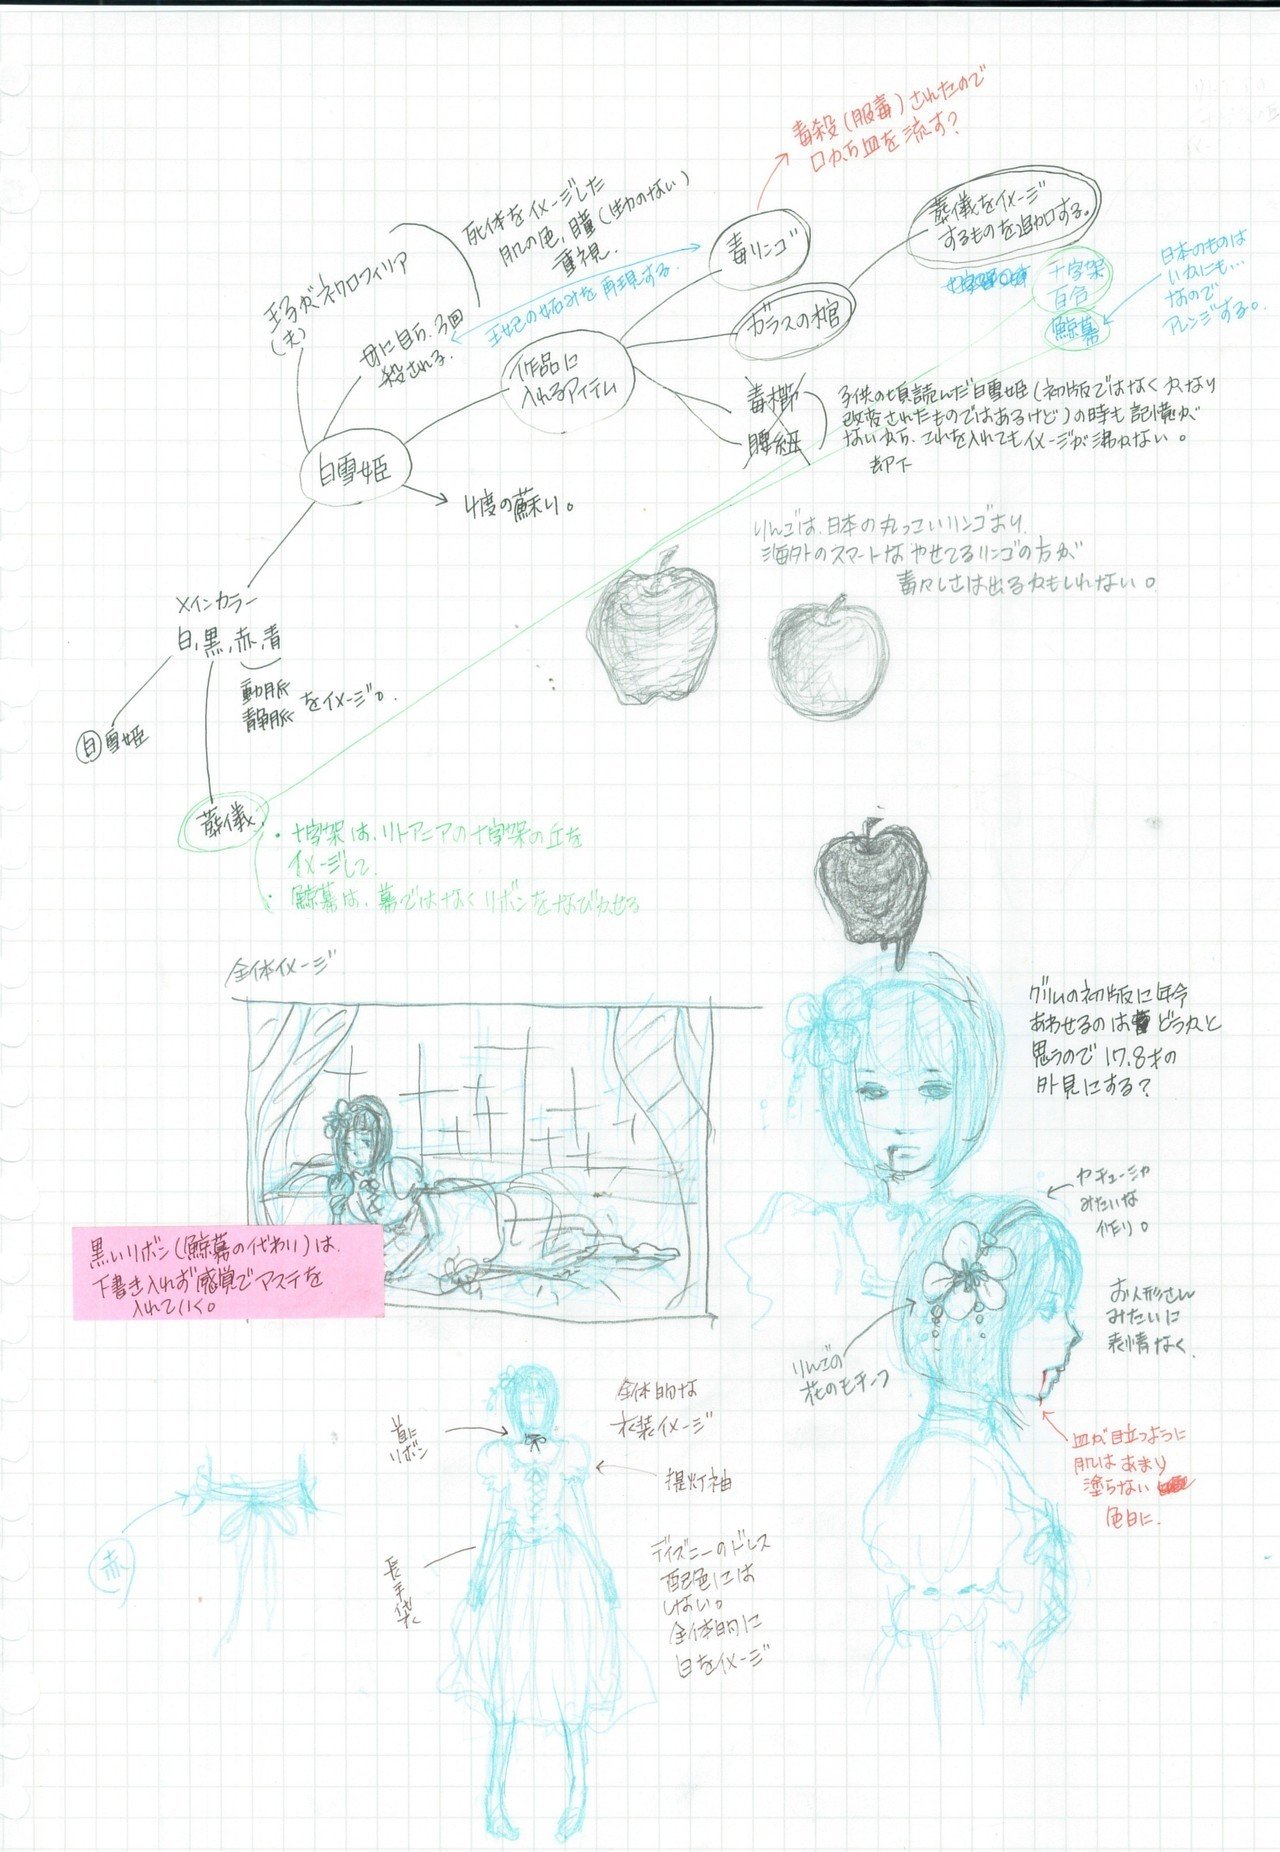 毒殺(服毒)されたので
口から血を流す?
死体をイメージした
肌の色、瞳(生力のない)
重視。
王子がネクロフィリア
(夫)
母に自ら、3回
殺される。
王妃の妬みを再現する。
毒リンゴ
葬儀をイメージ
するものを追加する。
十字架
百合
鯨幕
日本のものは
いかにも…
なので
アレンジする。
ガラスの棺
作品に
入れるアイテム
毒櫛
腰紐
子供の頃読んだ白雪姫(初版ではなくかなり
改変されたものではあるけど)の時も記憶が
ないから、これを入れてもイメージが沸かない。
却下
白雪姫
4度の蘇り。
りんごは、日本の丸っこいリンゴより、
海外のスマートなやせてるリンゴの方が
毒々しさは出るかもしれない。
メインカラー
白、黒、赤、青
動脈
静脈
をイメージ。
白雪姫
葬儀
・十字架は、リトアニアの十字架の丘を
イメージして、
・鯨幕は、幕ではなくリボンをなびかせる
全体イメージ
グリムの初版に年令
あわせるのは どうかと
思うので 17.8才の
外見にする?
カチューシャ
みたいな
作り。
お人形さん
みたいに
表情なく
黒いリボン(鯨幕の代わり)は、
下書き入れず感覚でアステを
入れていく。
りんごの
花のモチーフ
血が目立つように
肌はあまり
塗らない
色白に。
首に
リボン
全体的な
衣装イメージ
提灯袖
長手袋
赤
ディズニーのドレス
配色には
しない。
全体的に
白をイメージ